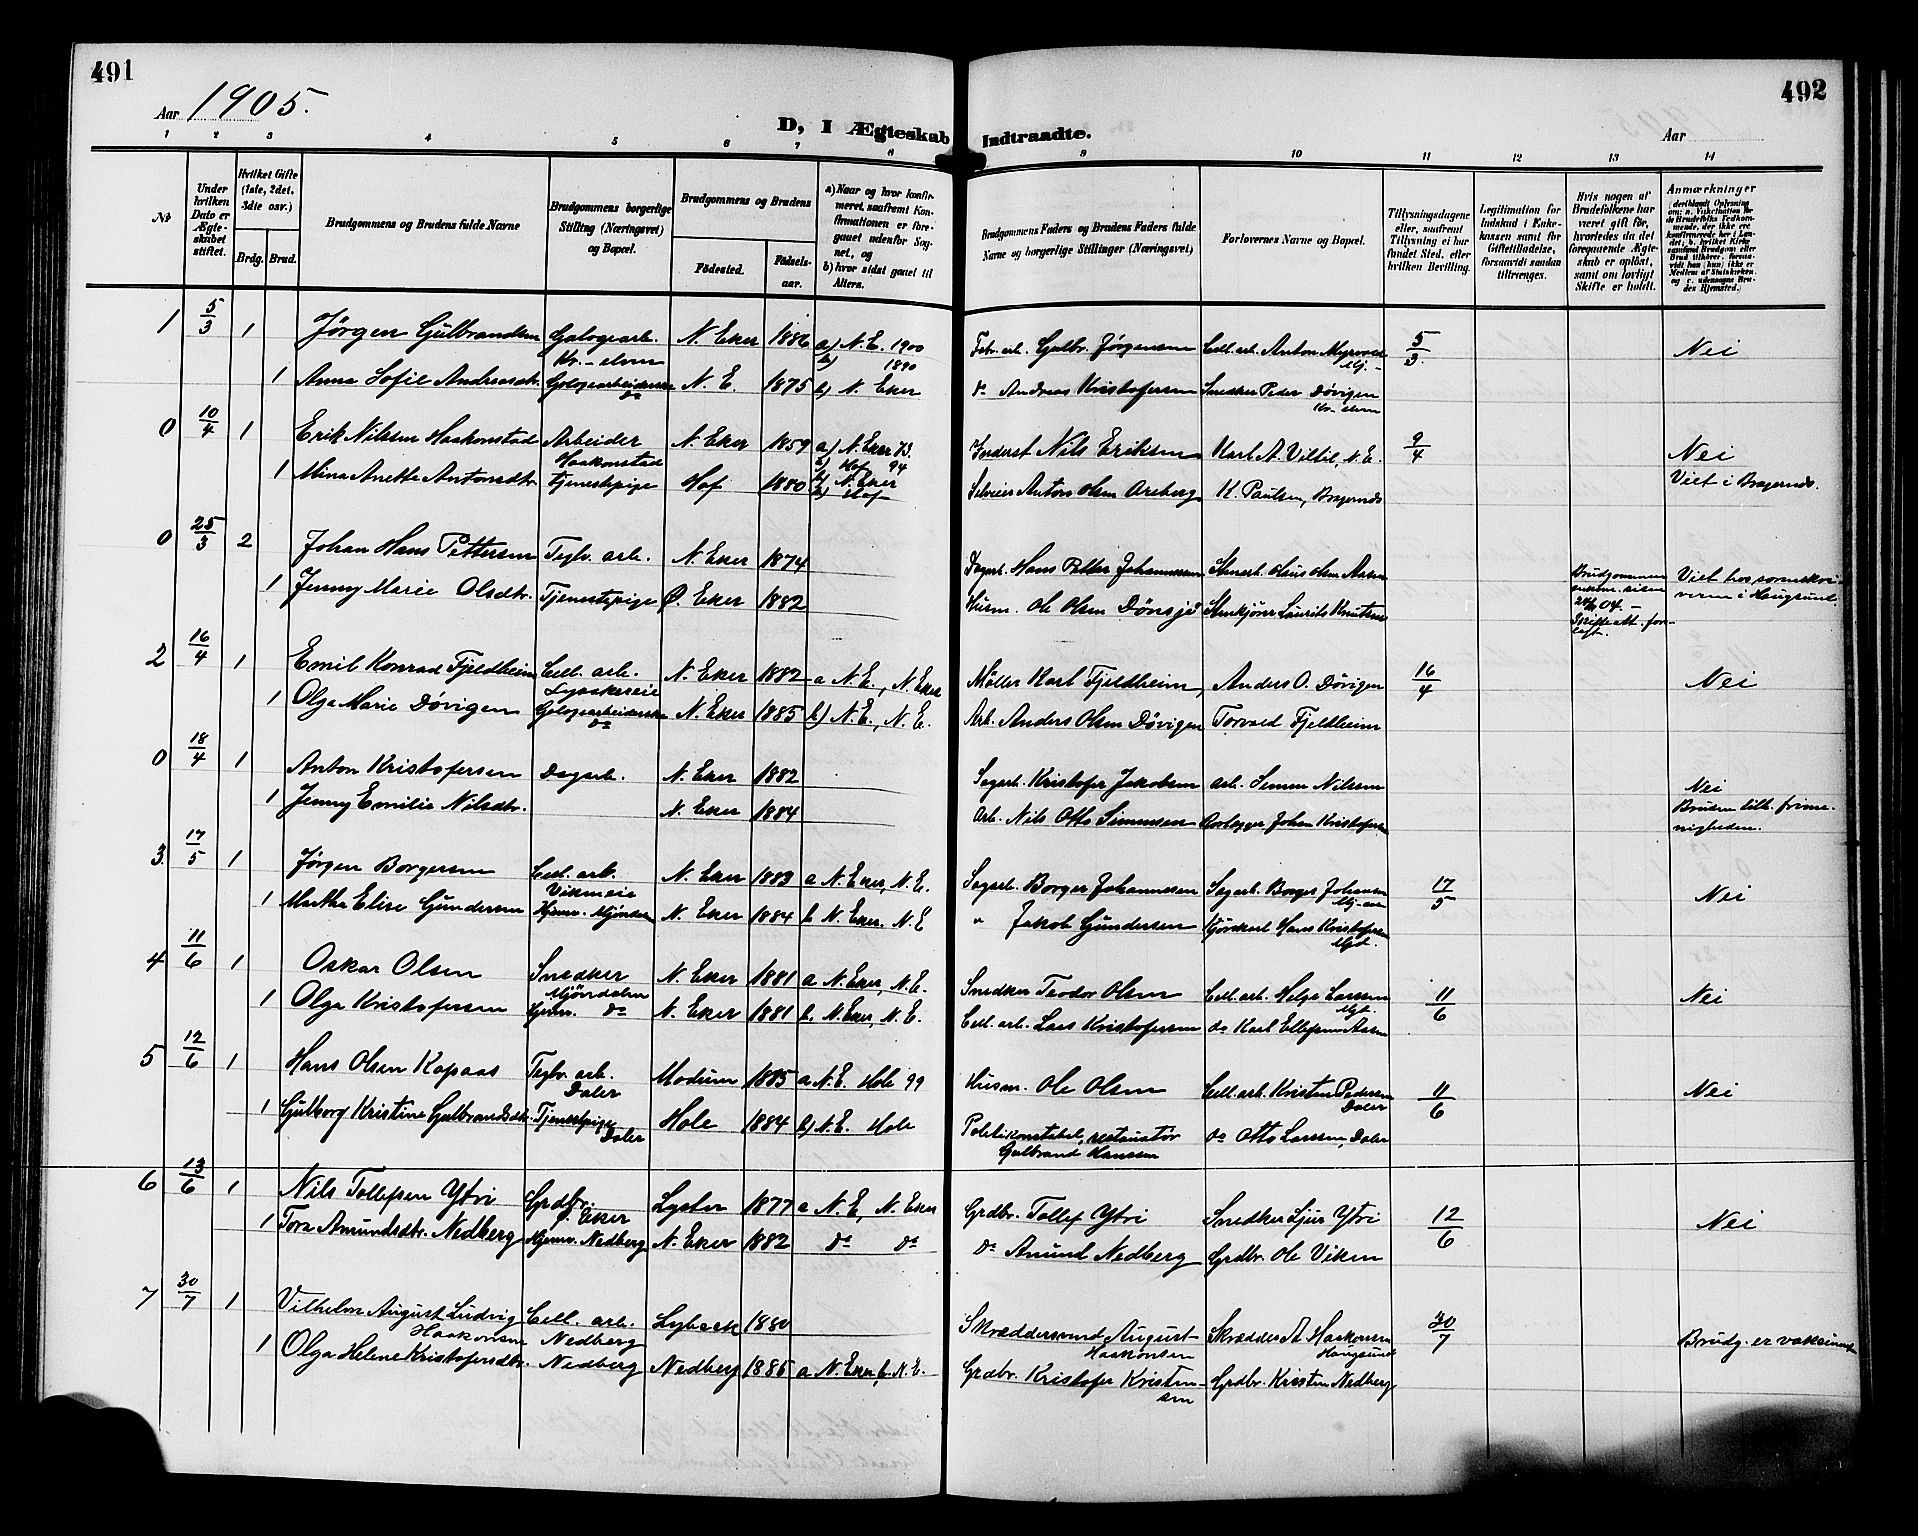 491
492
Aar 1905.
Aar
D, I Ægteskab Indtraadte.
1 2 3 4 5 6 7 8 9 10 11 12 13 14
No
Under hvilken Dato er Ægteskabet stiftet.
Hvilket Gifte (1ste, 2det, 3die osv.)
Brdg. Brud.
Brudgommens og Brudens fulde Navne
Brudgommens borgerlige Stilling (Næringsvei) og Bopæl.
Brudgommens og Brudens
Fødested. Fødselsaar.
a) Naar og hvor konfirmeret, saafremt Konfirmationen er foregaaet udenfor Sognet, og
b) hvor sidst gaaet til Alters.
Brudgommens Faders og Brudens Faders fulde Navne og borgerlige Stillinger (Næringsvei)
Forlovernes Navne og Bopæl.
Tillysningsdagene eller, saafremt Tillysning ei har fundet Sted, efter hvilken Bevilling.
Legitimation for Indskud i Enkekassen samt for Giftetilladelse, forsaavidt saadan tiltrænges.
Hvis nogen af Brudefolkene har været gift før, hvorledes da det foregaaende Ægteskab er opløst, samt om lovligt Skifte er holdt.
Anmærkninger
1 5/3 1 Jørgen Gulbrandsen Galogearb. N. Eker 1886 a) N. E. 1900 Gulbr. Jørgensen Cell. arb. Anton Myrvold 5/3 Nei
b) 1890
1 Anna Sofie Andreasdt. N. E. 1875 b) N. Eker do Andreas Kristofersen Snedker Peder Døvigen
0 10/4 1 Erik Nilsen Haakonstad Arbeider N. Eker 1859 a) N. Eker 73. Inderst Nils Eriksen Karl A. Viltil, N. E. 9/4 Nei
Haakonstad b) Hof 94
1 Mina Anette Antonsdt. Tjenestepige Hof 1880 N. Eker Hof Selveier Anton Olsen Areberg K. Paulsen, Bragernes Viet i Bragernes.
0 25/3 2 Johan Hans Pettersen Teglv. arb. N. Eker 1874 Hans Petter Johannessen Stenarb. Olaus Olsen Aasen Brudgommen Viet hos sorenskriveren i Haugsund.
1 Jenny Marie Olsdtr. Tjenestepige Ø. Eker 1882 Husm. Ole Olsen Dønsjø Stenkjører Laurits Knutsen 04. - Skifteatt. forlagt.
2 16/4 1 Emil Konrad Fjeldheim Cell. arb. N. Eker 1882 a N. E., N. Eker Møller Karl Fjeldheim, Anders O. Døvigen 16/4 Nei
1 Olga Marie Døvigen do N. Eker 1885 b) N. E., N. E. Arb. Anders Olsen Døvigen Torvald Fjeldheim
0 18/4 1 Anton Kristofersen Dagarb. N. Eker 1882 Sagarb. Kristofer Jakobsen arb. Simen Nilssen Nei
1 Jenny Emilie Nilsdtr. N. Eker 1884 Arb. Nils Otto Simensen Johan Kristofersen Bruden tilh. frimenigheden.
3 17/5 1 Jørgen Borgersen Cell. arb. N. Eker 1883 a N. Eker, N. E. Sagarb. Borger Johannesen Sagarb. Borger Johansen 17/5 Nei
Vikmeie
1 Martha Elise Gundersen Hjemv. Mjønd. N. Eker 1884 b N. Eker. N. E " Jakob Gundersen Kjørekarl Hans Kristofersen
4 11/6 1 Oskar Olsen Snedker N. Eker 1881 a N. Eker, N. E. Snedker Teodor Olsen Cell. arb. Helge Larsen 11/6 Nei
Mjøndalen
1 Olga Kristofersen Hjemv. do N. Eker 1881 b. N. Eker, N. E. Cell. arb. Lars Kristofersen do Karl Ellefsen Aasen
5 12/6 1 Hans Olsen Kopaas Teglv. arb. Modum 1885 a N. E. Hole 99 Husm. Ole Olsen Cell. arb. Kristen Pedersen 11/6 Nei
Daler Daler
1 Gulborg Kristine Gulbrandsdtr. Tjenestepige Hole 1884 b) N. E. Hole Politikonstabel, restauratør do Otto Larsen, Daler
Daler Gulbrand Hanssen
6 13/6 1 Nils Tollefsen Ytri Grdbr. Lyster 1877 a N. E, N. Eker Grdbr. Tollef Ytri Snedker Sjur Ytri 12/6 Nei
Ø. Eker
1 Tora Amundsdtr. Nedberg Hjemv. Nedberg N. Eker 1882 do do do Amund Nedberg Grdbr. Ole Viken
7 30/7 1 Vilhelm August Ludvig Cell. arb. Lybeck 1880 Skræddersvend August Skrædder A Haakonsen 30/7 Brudg. er vaksineret
Haakonsen Nedberg Haakonsen Haugsund
1 Olga Helene Kristofersdtr. Nedberg Nedberg 1885 a N. Eker b. N. E. Grdbr. Kristofer Kristensen Grdbr. Kristen Nedberg